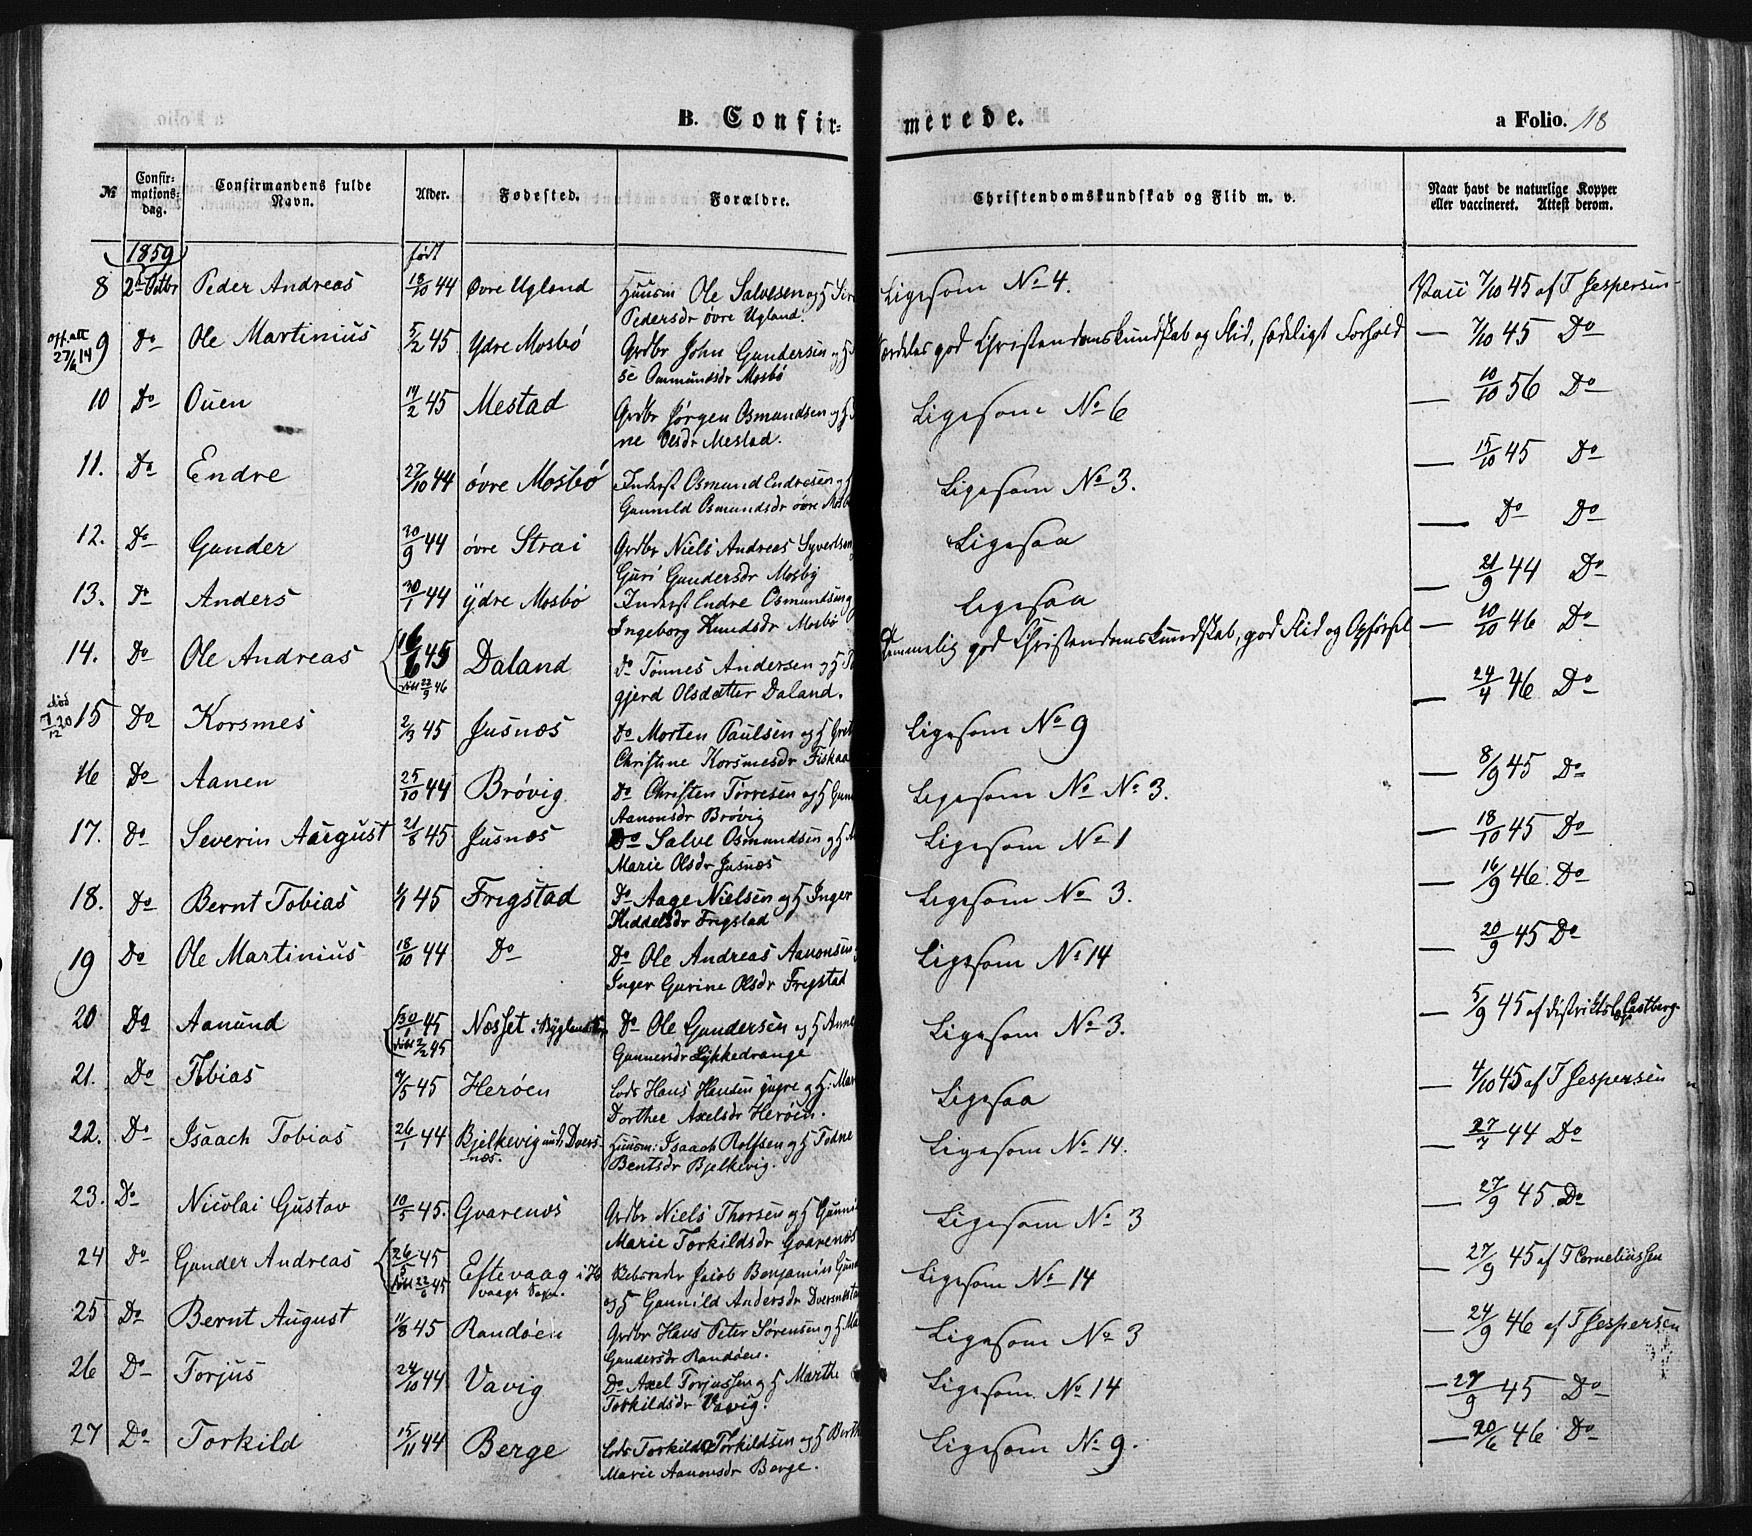 B. Confir-
merede.
a Folio. 18
№
Confir-
mations-
dag.
Confirmandens fulde
Navn.
Alder.
Fødested.
Forældre.
Christendomskundskab og Flid m. v.
Naar havt de naturlige Kopper
eller vaccineret. Attest derom.
1859
født
8 2d Octbr Peder Andreas 18/10 44 Øvre Ugland Huusm Ole Salvesen og H Siri Ligesom No 4. Vacc 7/10 45 af T Jespersen
Pedersdr øvre Ugland.
off. att 27/6 14 9 Do Ole Martinius 5/2 45 Ydre Mosbø Grdbr John Gundersen og H Særdeles god Christendomskundskab og Flid, sædeligt Forhold — 7/10 45 Do
se Ommundsdr Mosbø
10 Do Ouen 14/2 45 Mestad Grdbr Jørgen Osmundsen og H Ligesom No 6 — 10/10 56 Do
ne Olsdr Mestad.
11. Do Endre 27/10 44 øvre Mosbø Inderst Osmund Endresen og H Ligesom No 3. — 15/10 45 Do
Gunnild Osmundsdr øvre Mosb
12. Do Gunder 30/9 44 øvre Strai Grdbr Niels Andreas Syvertsen Ligesaa — Do Do
Guri Gundersdr Mosby
13. Do Anders 30/1 44 ydre Mosbø Inderst Endre Osmundsen og Ligesaa — 21/9 44 Do
Ingeborg Knudsdr Mosbø
14. Do Ole Andreas 16/6 45 Daland Do Tønnes Andersen og H Temmelig god Christendomskundskab, god Flid og Opførsel — 10/10 46 Do
døbt 22/9 46
gjerd Olsdatter Daland.
død 7/12 20 15 Do Korsmes 2/3 45 Jusnæs Do Morten Paulsen og H Gret Ligesom No 9 — 24/4 46 Do
Christine Korsmesdr Fiskaa
16 Do Aanen 25/10 44 Brøvig Do Christen Tørresen og H Gun Ligesom No No 3. — 8/9 45 Do
Aanonsdr Brøvig
17. Do Severin August 21/6 45 Jusnæs Do Salve Osmundsen og H Ligesom No 1 — 18/10 45 Do
Marie Olsdr Jusnæs
18. Do Bernt Tobias 4/1 45 Frigstad Do Aage Nielsen og H Inger Ligesom No 3. — 16/9 46. Do
Keddelsdr Frigstad
19 Do Ole Martinius 18/10 44 Do Do Ole Andreas Aanonsen Ligesom No 14 — 20/9 45 Do
Inger Gurine Olsdr Frigstad
20 Do Aanund 30/1 45 Næsset i Bygland Do Ole Gundersen og H Anne Ligesom No 3. — 5/9 45 af distriktsl. Castberg
døbt 2/2 45
Gunnersdr Lykkedrange
21. Do Tobias 9/5 45 Herøen Lods Hans Hansen yngre og H: Mar Ligesaa — 4/10 45 af T Jespersen
Dorthee Axelsdr Herøen.
22. Do Isaach Tobias 26/1 44 Bjelkevig und. Dvers- Huusm: Isaach Rolfsen og H Todne Ligesom No 14. — 27/7 44 Do
næs.
Bentsdr Bjelkevig.
23. Do Nicolai Gustav 10/5 45. Gvarenæs Grdbr Niels Thorsen og H Gunni Ligesom No 3 — 27/9 45. Do
Marie Torkildsdr Gvarenæs
24 Do Gunder Andreas 26/5 45 Eftevaag i H Jacob Benjamin Gund Ligesom No 14 — 27/9 45 af T Corneliussen
døbt 22/6 45 vaags Sogn.
og H Gunnild Andersdr Dversnæs
25 Do Bernt August 11/8 45 Randøen Grdbr Hans Peter Sørensen og H Ma Ligesom No 3 — 24/9 46 af T Jespersen
Gundersdr Randøen.
26 Do Torjus 24/10 44 Vavig Do Axel Torjussen og H Marthe Ligesom No 14 — 27/9 45 Do
Torkildsdr Vavig.
27 Do Torkild 15/11 44 Berge Lods Torkild Torkildsen og H Berth Ligesom No 9. — 20/6 46. Do
Marie Aanonsdr Berge.